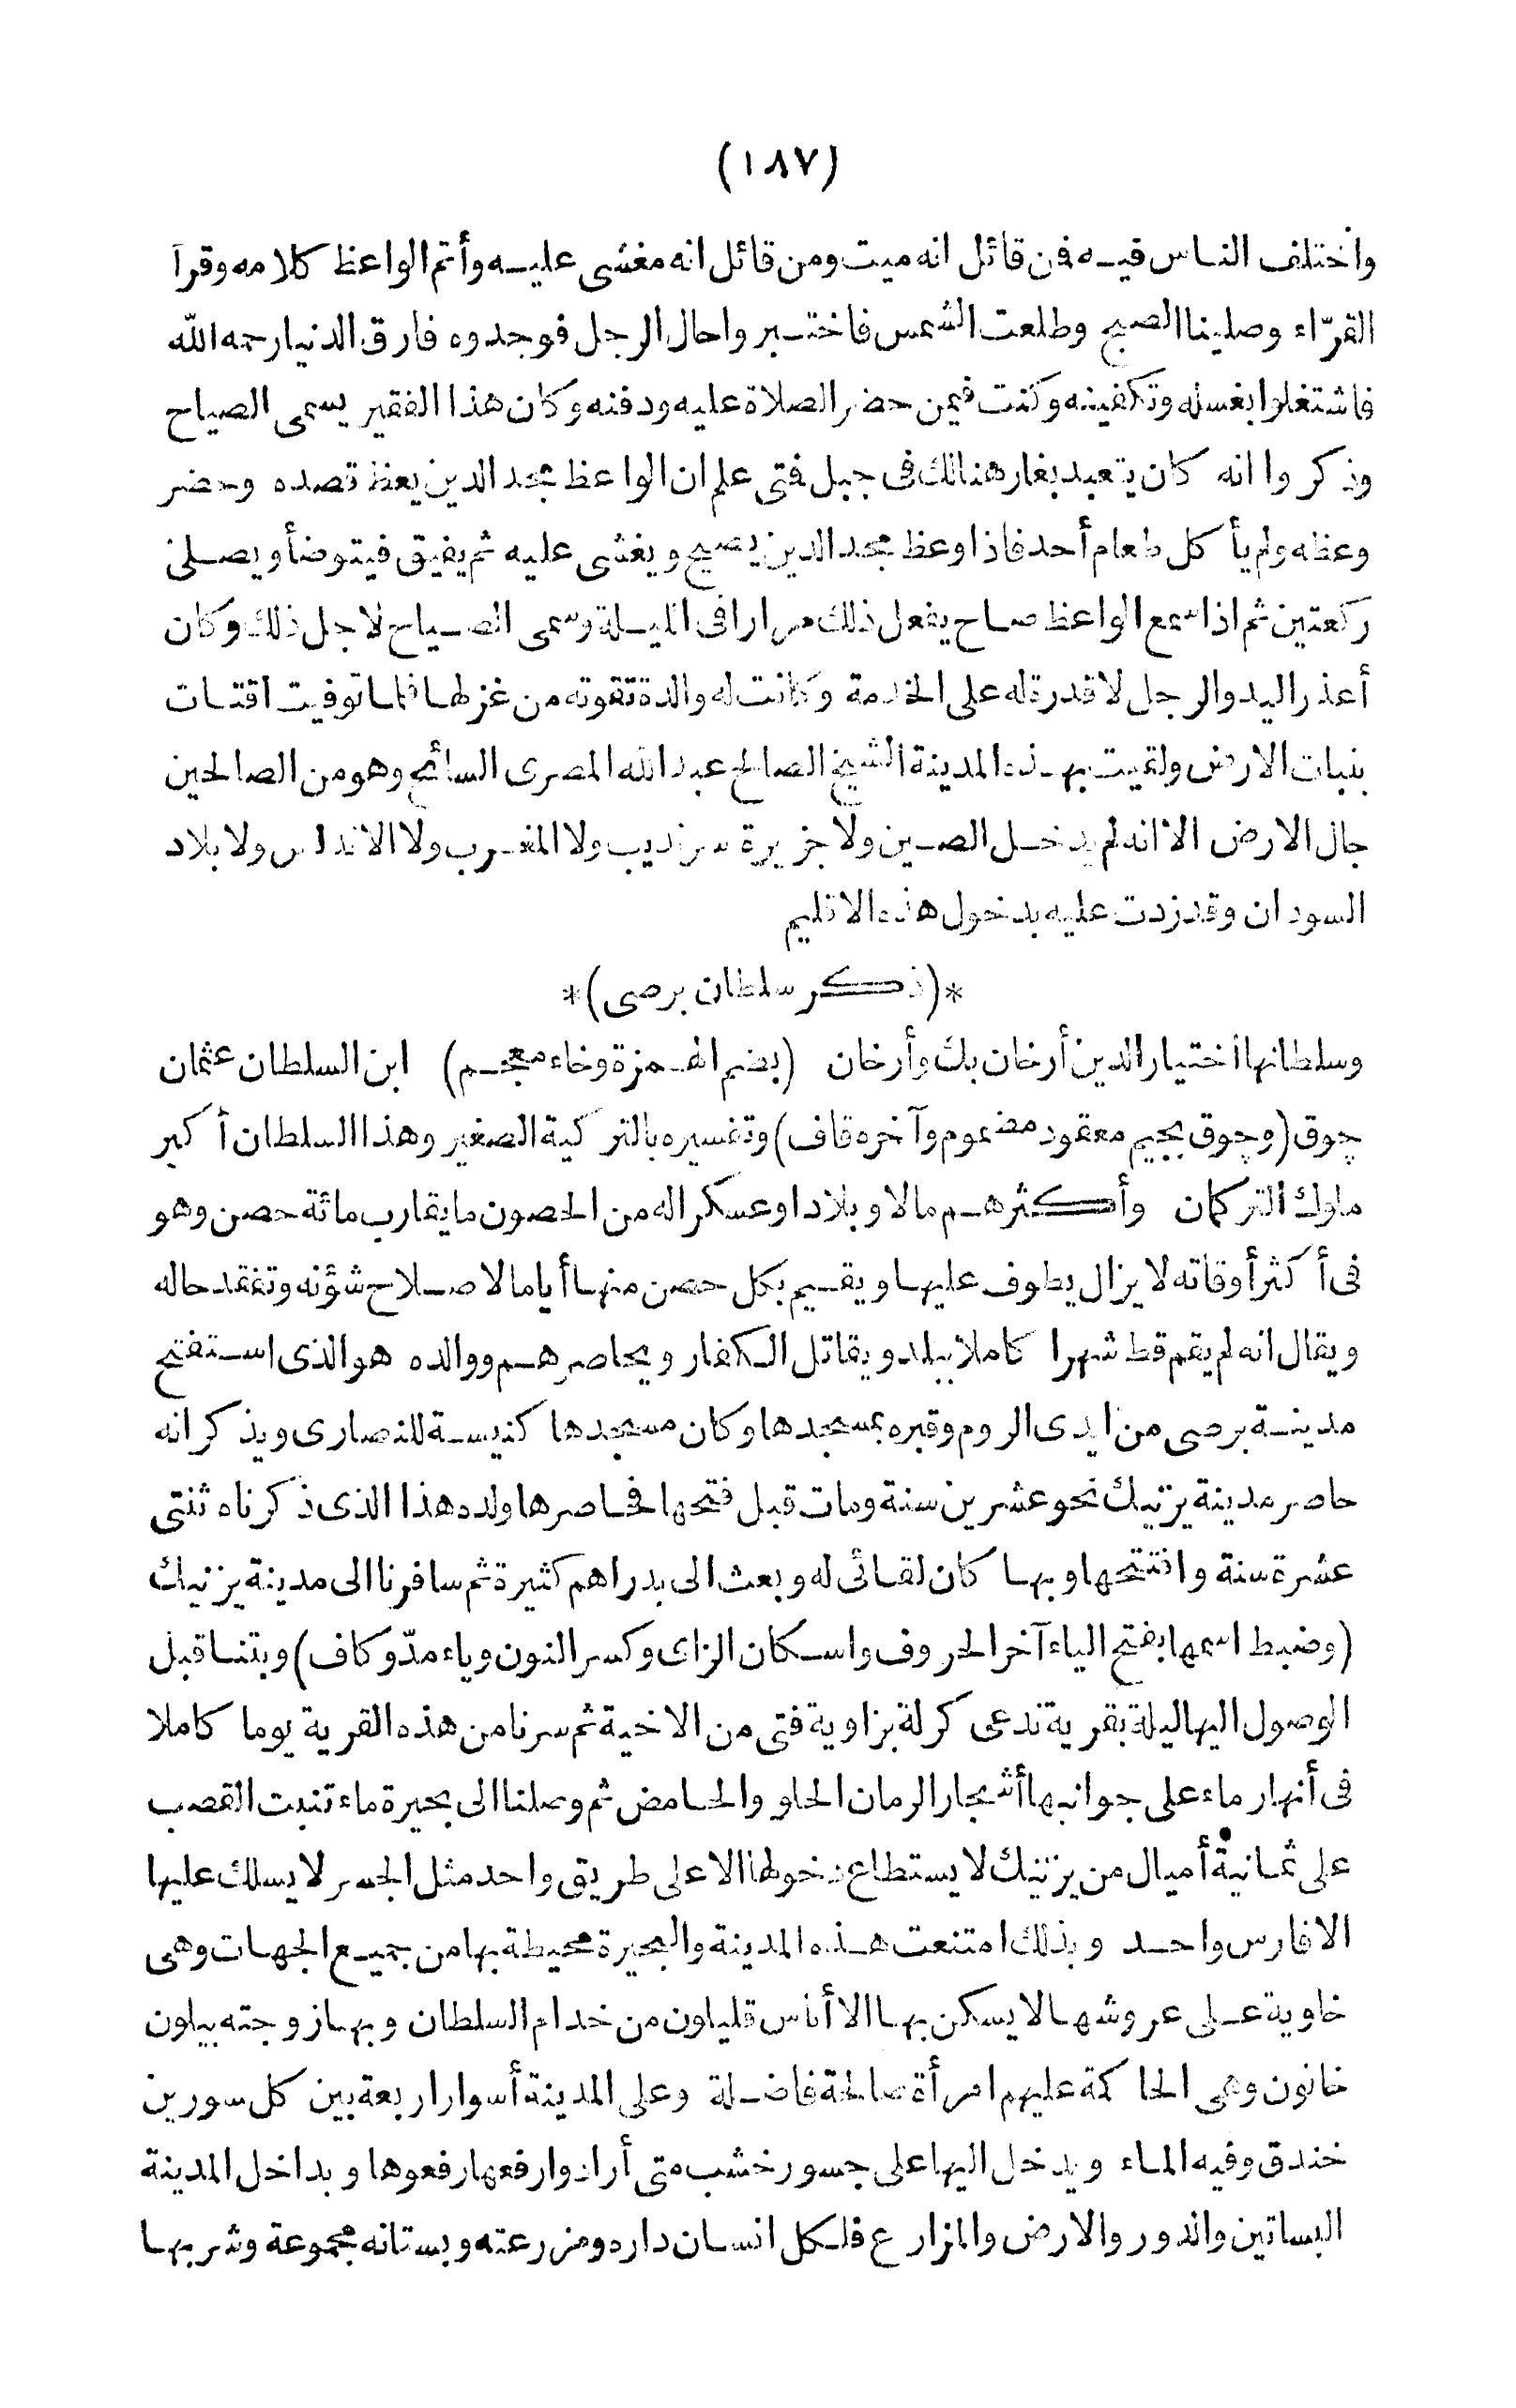 (١٨٧)
واختلف الناس فيه فمن قائل انه ميت ومن قائل انه مغشى عليه وأتم الواعظ كلامه وقرأ
القرّاء وصلينا الصبح وطلعت الشمس فاختبروا حال الرجل فوجدوه فارق الدنيا رحمه الله
فاشتغلوا بغسله وتكفينه وكنت فيمن حضر الصلاة عليه ودفنه وكان هذا الفقير يسمى الصياح
وذكروا انه كان يتعبد بغار هنالك فى جبل فتى علم ان الواعظ مجد الدين يعظ قصده وحضر
وعظه ولم يأكل طعام أحد فاذا وعظ مجد الدين يصيح ويغشى عليه ثم يفيق فيتوضأ ويصلى
ركعتين ثم اذا سمع الواعظ صاح يفعل ذلك مرارا فى الليلة وسمى الصياح لاجل ذلك وكان
أعذر اليد والرجل لا قدرة له على الخدمة وكانت له والدة تقوته من غزلها فلما توفيت اقتات
بنبات الارض ولقيت بهذه المدينة الشيخ الصالح عبد الله المصرى السائح وهو من الصالحين
جال الارض الا انه لم يدخل الصين ولا جزيرة سرنديب ولا المغرب ولا الاندلس ولا بلاد
السودان وقد زدت عليه بدخول هذه الاقليم
*(ذكر سلطان برصى)*
وسلطانها اختيار الدين أرخان بك وأرخان (بضم الهمزة وخاء معجم) ابن السلطان عثمان
چوق (وچوق بجيم معقود مضموم وآخره قاف) وتفسيره بالتركية الصغير وهذا السلطان أكبر
ملوك التركمان وأكثرهم مالا وبلادا وعسكرا له من الحصون ما يقارب مائة حصن وهو
فى أكثر أوقاته لا يزال يطوف عليها ويقيم بكل حصن منها أياما لاصلاح شؤنه وتفقد حاله
ويقال انه لم يقم قط شهرا كاملا ببلد ويقاتل الكفار ويحاصرهم ووالده هو الذى استفتح
مدينة برصى من ايدى الروم وقبره بمسجدها وكان مسجدها كنيسة للنصارى ويذكر انه
حاصر مدينة يزنيك نحو عشرين سنة ومات قبل فتحها فحاصرها ولده هذا الذى ذكرناه ثنتى
عشرة سنة وافتتحها وبها كان لقائى له وبعث الى بدراهم كثيرة ثم سافرنا الى مدينة يزنيك
(وضبط اسمها بفتح الياء آخر الحروف واسكان الزاى وكسر النون وياء مدّ وكاف) وبتنا قبل
الوصول اليها ليلة بقرية تدعى كرلة بزاوية فتى من الاخية ثم سرنا من هذه القرية يوما كاملا
فى أنهار ماء على جوانبها أشجار الرمان الحلو والحامض ثم وصلنا الى بحيرة ماء تنبت القصب
على ثمانية أميال من يزنيك لا يستطاع دخولها الا على طريق واحد مثل الجسر لا يسلك عليها
الا فارس واحد وبذلك امتنعت هذه المدينة والبحيرة محيطة بها من جميع الجهات وهى
خاوية على عروشها لا يسكن بها الا أناس قليلون من خدام السلطان وبها زوجته بيلون
خاتون وهى الحاكمة عليهم امرأة صالحة فاضلة وعلى المدينة أسوار اربعة بين كل سورين
خندق وفيه الماء ويدخل اليها على جسور خشب متى أرادوا رفعها رفعوها وبداخل المدينة
البساتين والدور والارض والمزارع فلكل انسان داره ومزرعته وبستانه مجموعة وشربها